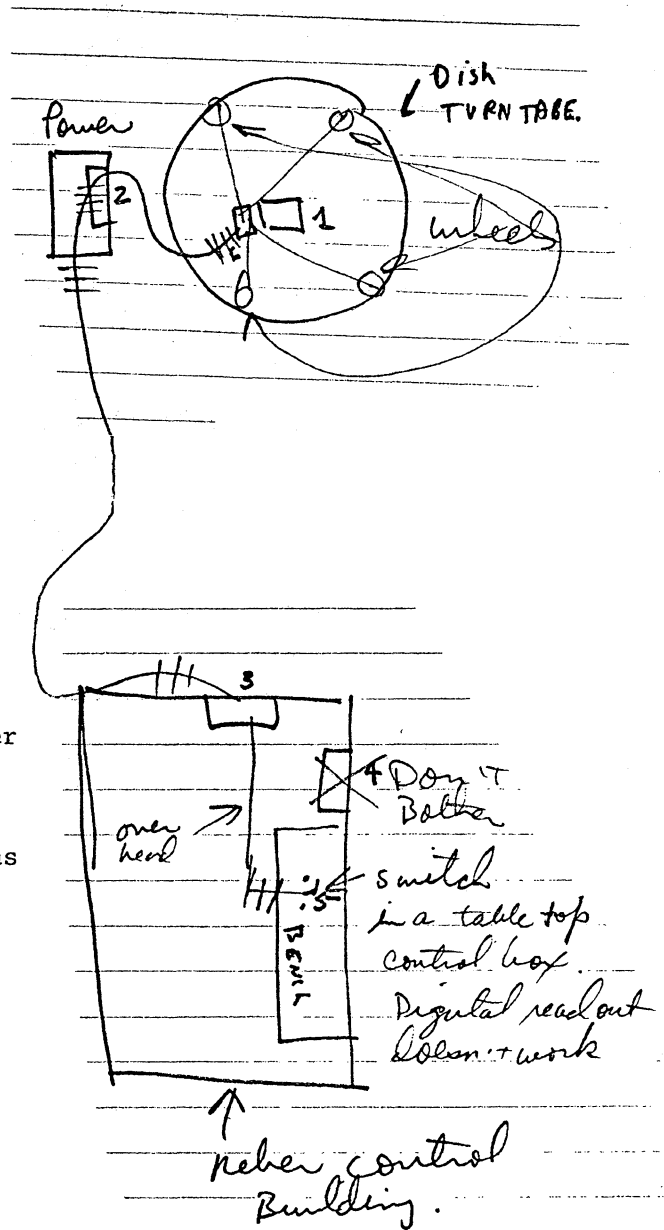 Dish
TURN TABE.
Power
2
1
wheels
3
er
4 Don't
Bother
over
head
us
switch
5
in a table top
BENCH
control box.
Digital readout
doesn't work
Reber control
Building.